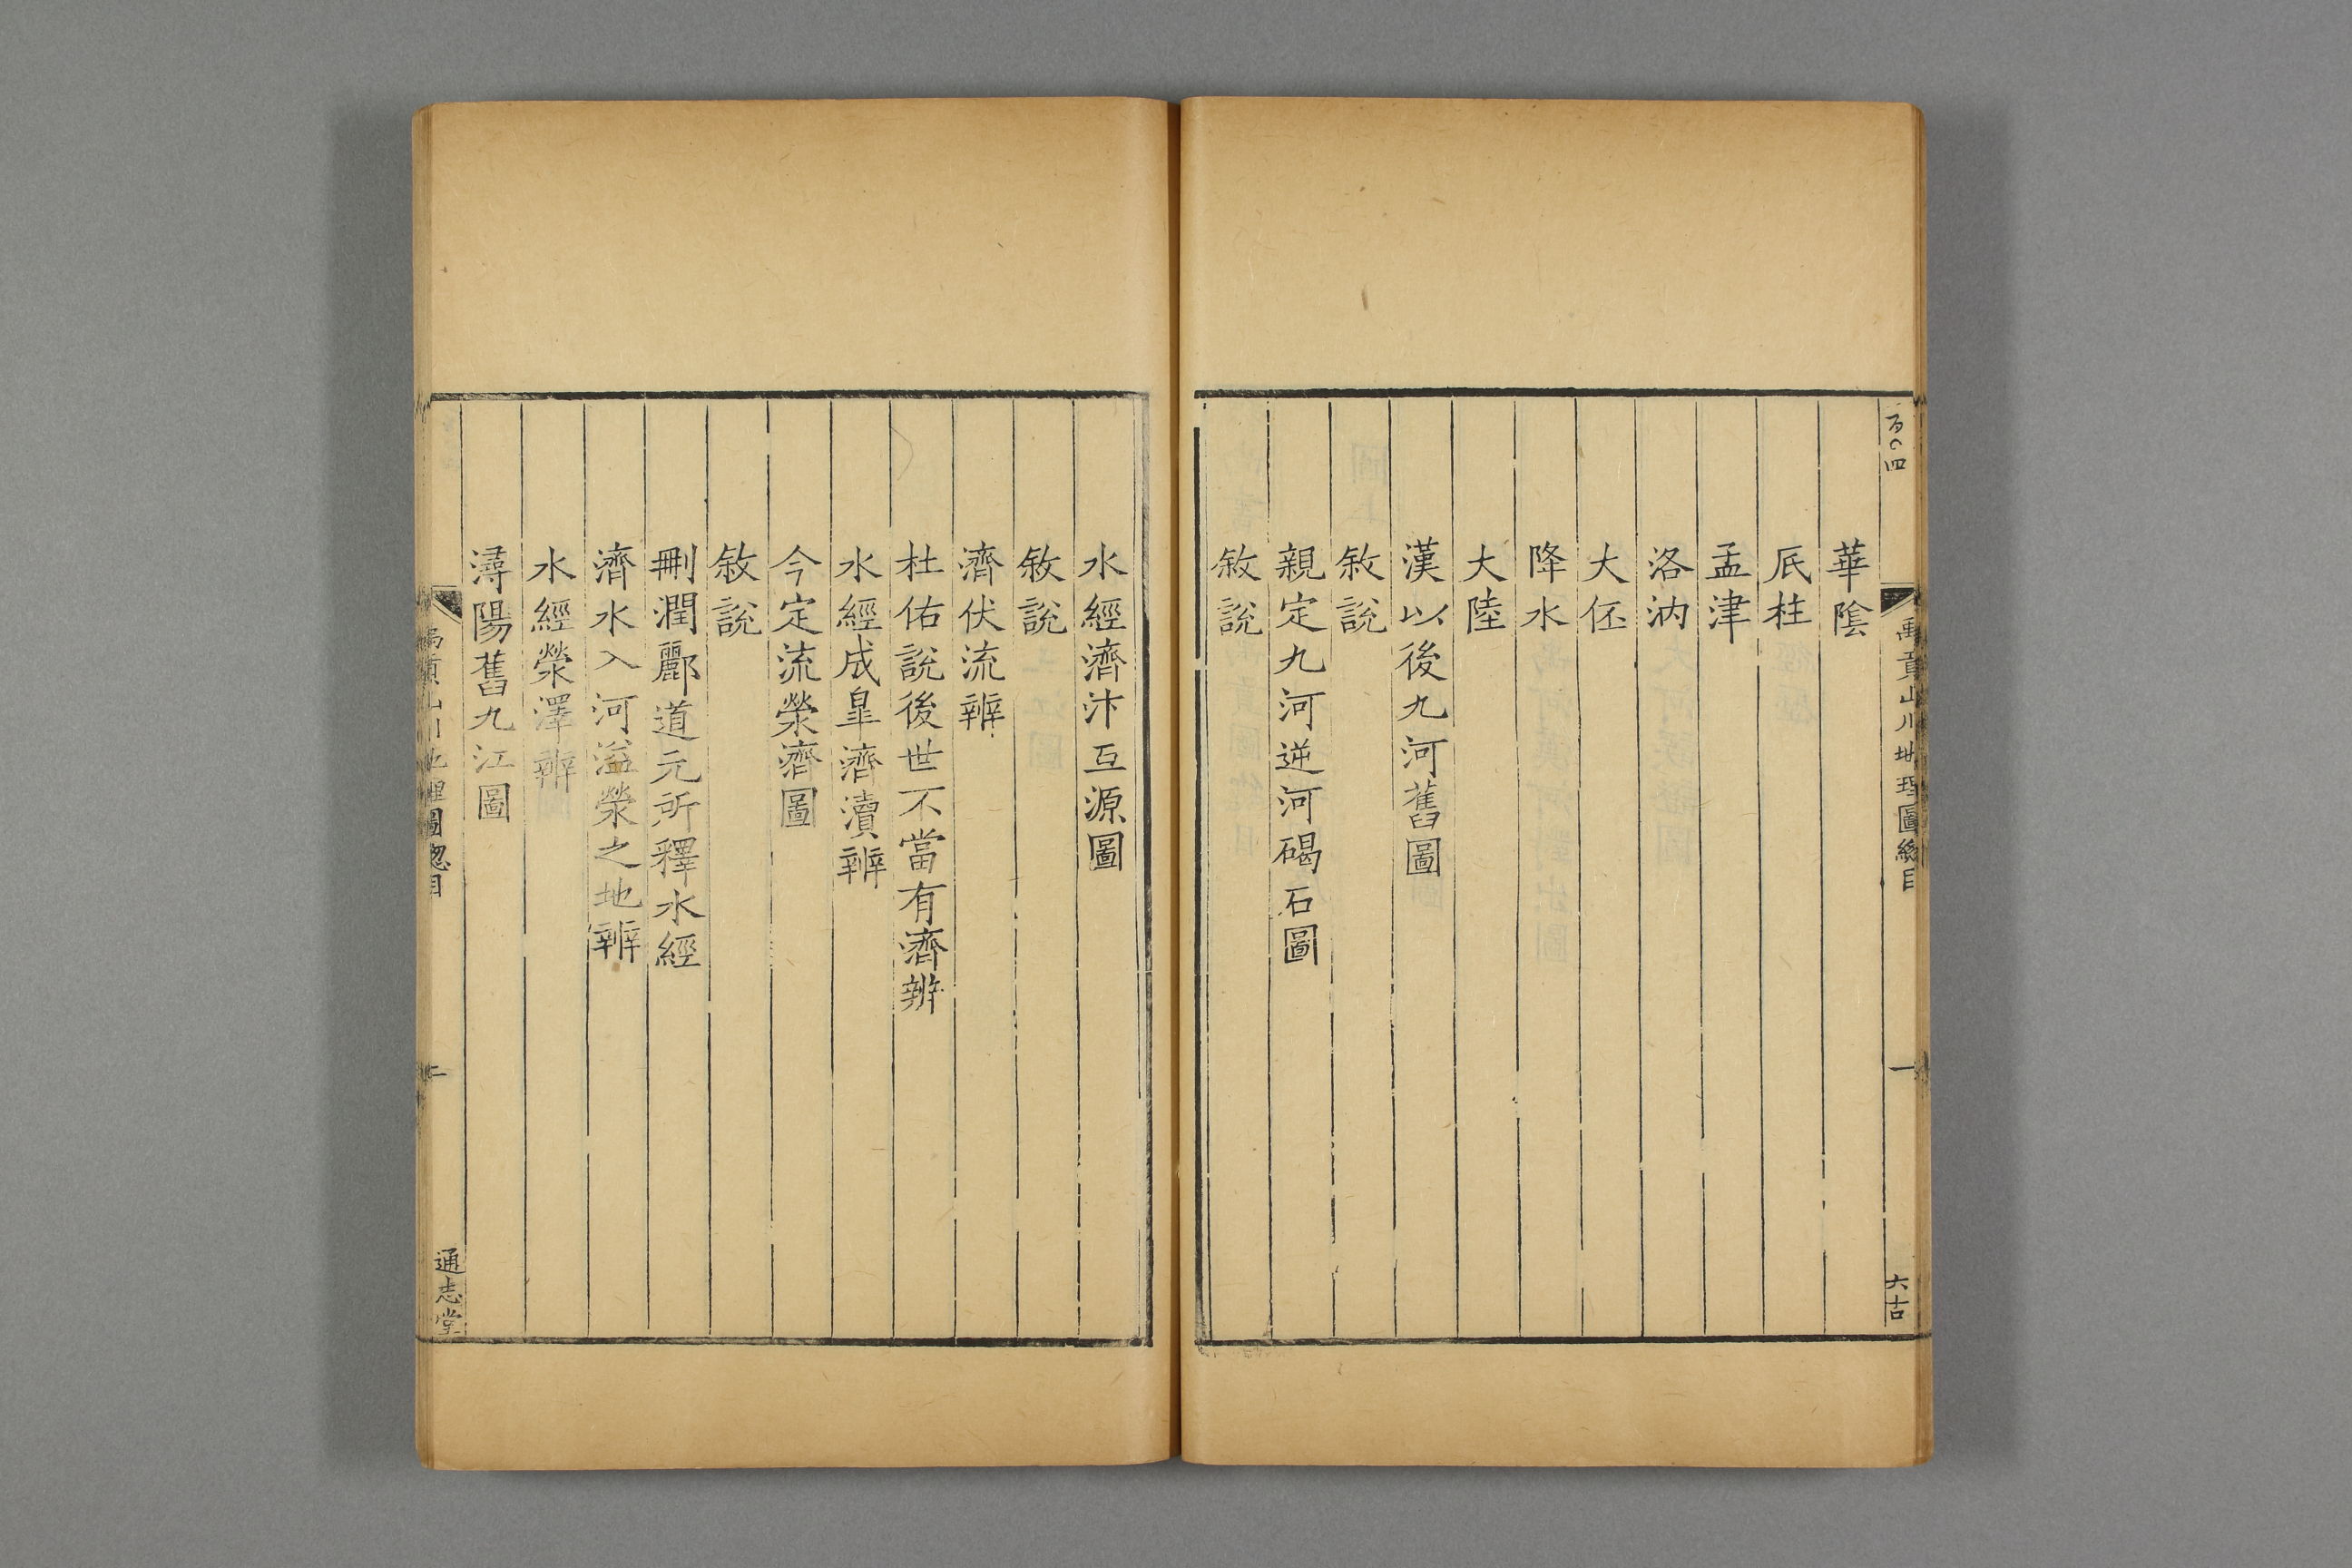 百〇四
禹貢山川地理圖緫目
一
六古
華陰
厎柱
孟津
洛汭
大伾
降水
大陸
漢以後九河舊圖
敘說
親定九河逆河碣石圖
敘說
水經濟汴互源圖
敘說
濟伏流辨
杜佑說後世不當有濟辨
水經成臯濟瀆辨
今定流滎濟圖
敘說
刪潤酈道元所釋水經
濟水入河溢滎之地辨
水經滎澤辨
潯陽舊九江圖
禹貢山川地理圖緫目
二
通志堂